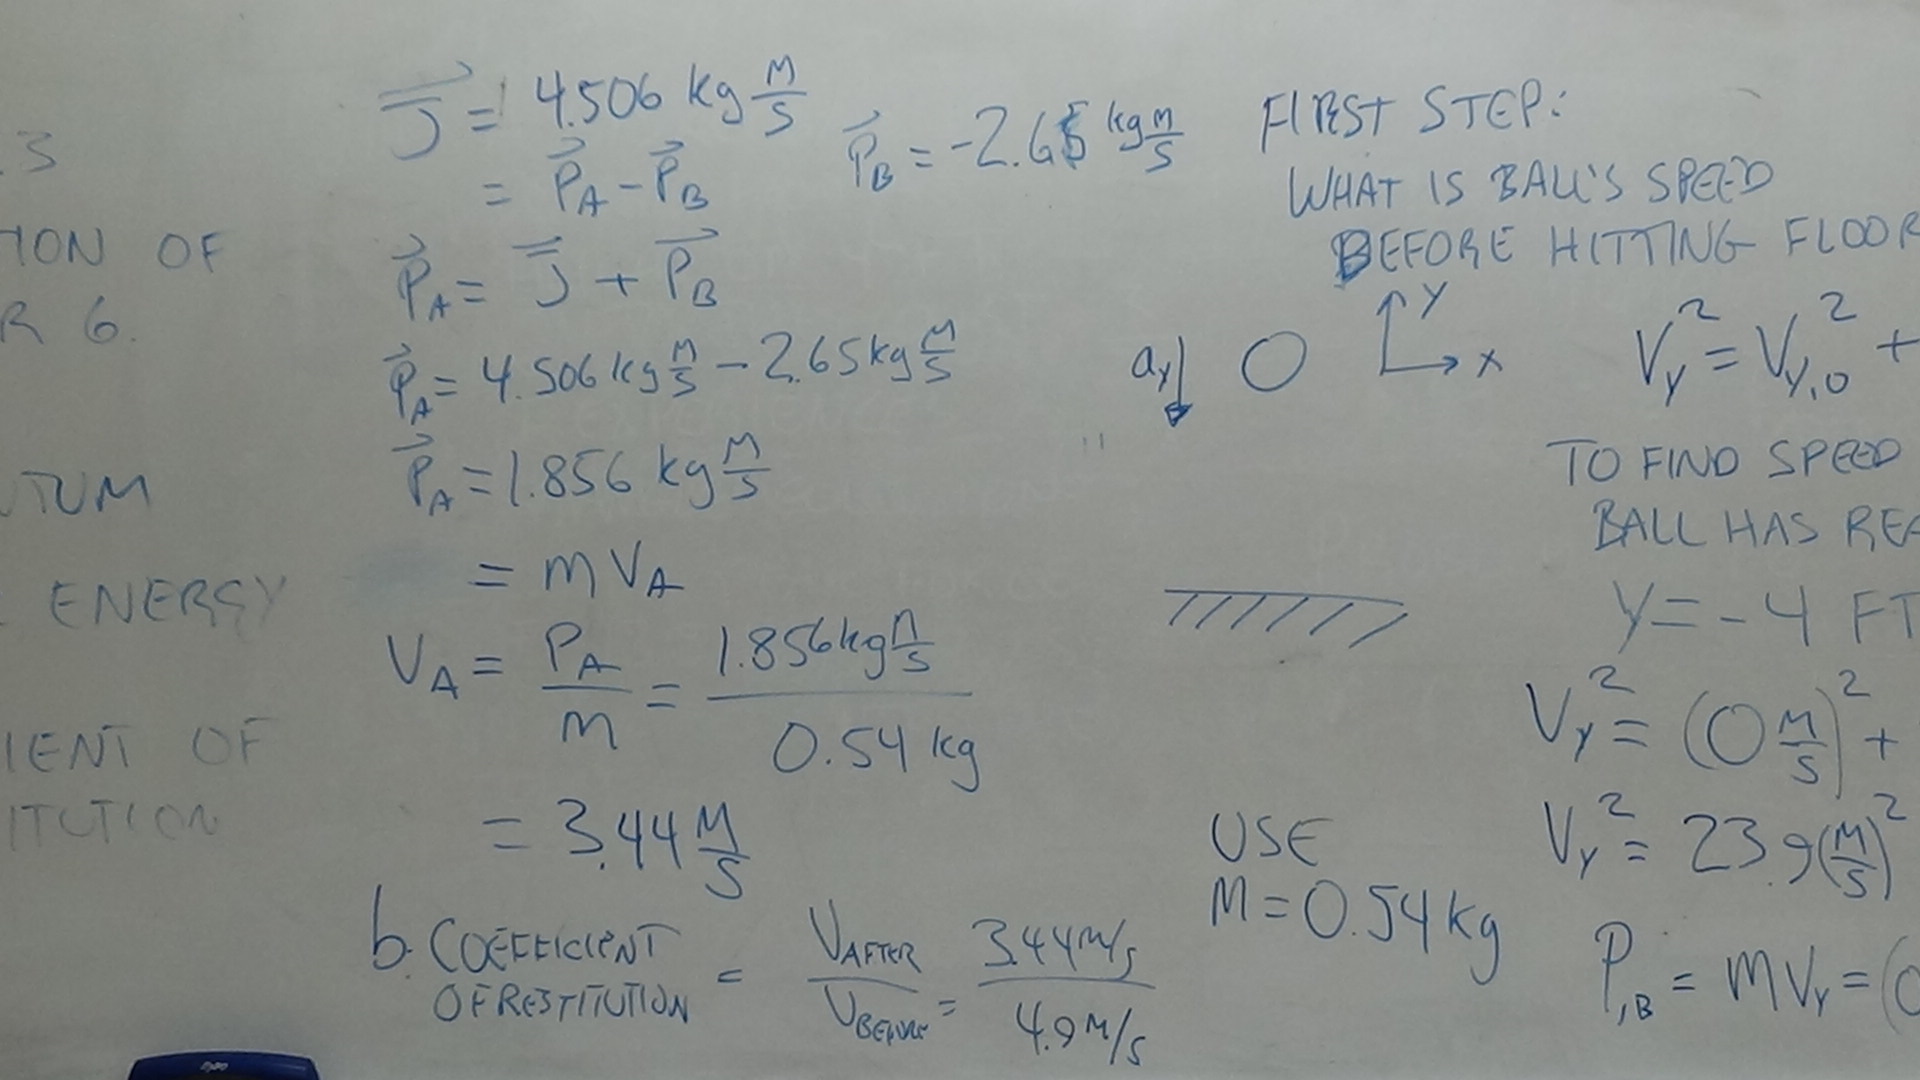 .3
TION OF
R 6.
TUM
ENERGY
IENT OF
ITUTION
J = 4.506 kg M/S
= P_A - P_B
P_B = -2.65 kg M/S
P_A = J + P_B
P_A = 4.506 kg M/S - 2.65 kg M/S
P_A = 1.856 kg M/S
= m V_A
V_A = P_A/m = 1.856 kg M/S / 0.54 kg
= 3.44 M/S
b. COEFFICIENT OF RESTITUTION = V_AFTER/V_BEFORE = 3.44 M/S / 4.9 M/S
FIRST STEP:
WHAT IS BALL'S SPEED
BEFORE HITTING FLOOR
a_y
Y
X
USE
M = 0.54 kg
V_y^2 = V_y,0^2 +
TO FIND SPEED
BALL HAS REA
Y = -4 FT
V_y^2 = (0 M/S)^2 +
V_y^2 = 23.9 (M/S)^2
P_,B = m V_y = (0